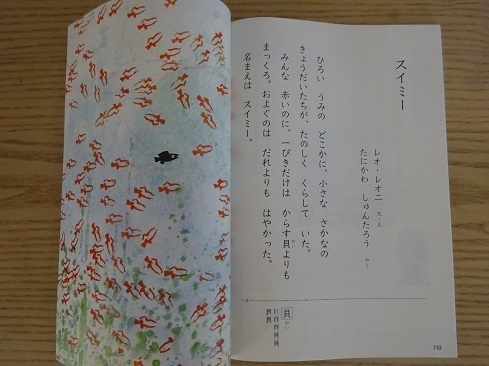 スイミー
レオ・レオニ 文・え
たにかわ しゅんたろう やく
ひろい うみの どこかに、小さな さかなの
きょうだいたちが、たのしく くらして いた。
みんな 赤いのに、一ぴきだけは からす貝よりも
まっくろ。およぐのは だれよりも はやかった。
名まえは スイミー。
貝
110